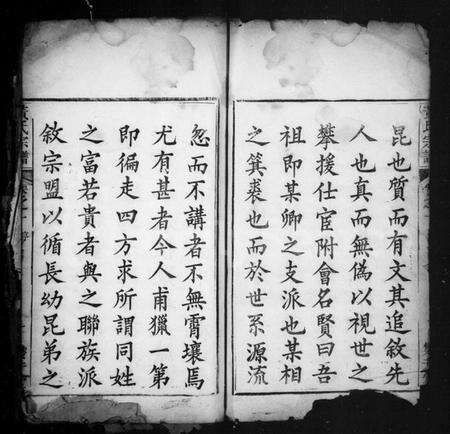 昆也質而有文其追敘先
人也真而無偽以視世之
攀援仕宦附會名賢曰吾
祖即某卿之支派也某相
之箕裘也而於世系源流
忽而不講者不無霄壤焉
尤有甚者今人甫獵一第
即徧走四方求所謂同姓
之富若貴者與之聯族派
敘宗盟以循長幼昆弟之
氏宗譜